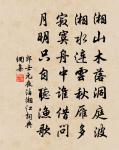 湘山木落洞庭波
湘水連雲秋雁多
寂寞舟中誰借問
月明只自聽漁歌
郎士元夜泊湘江詞典
網集